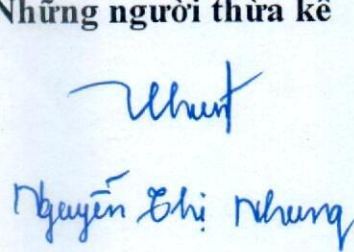 Những người thừa kế
Nhung
Nguyễn Thị Nhung